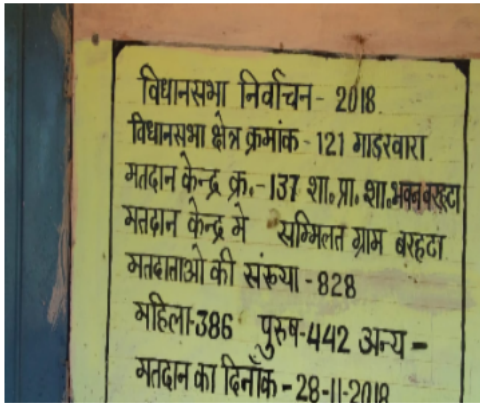 विधानसभा निर्वाचन - 2018.
विधानसभा क्षेत्र क्रमांक - 121 गाडरवारा
मतदान केन्द्र क्र.-137 शा.प्रा.शा.भवन बरहटा
मतदान केन्द्र मे सम्मिलत ग्राम बरहटा
मतदाताओ की संख्या - 828
महिला-386 पुरुष-442 अन्य -
मतदान का दिनाँक - 28-11-2018